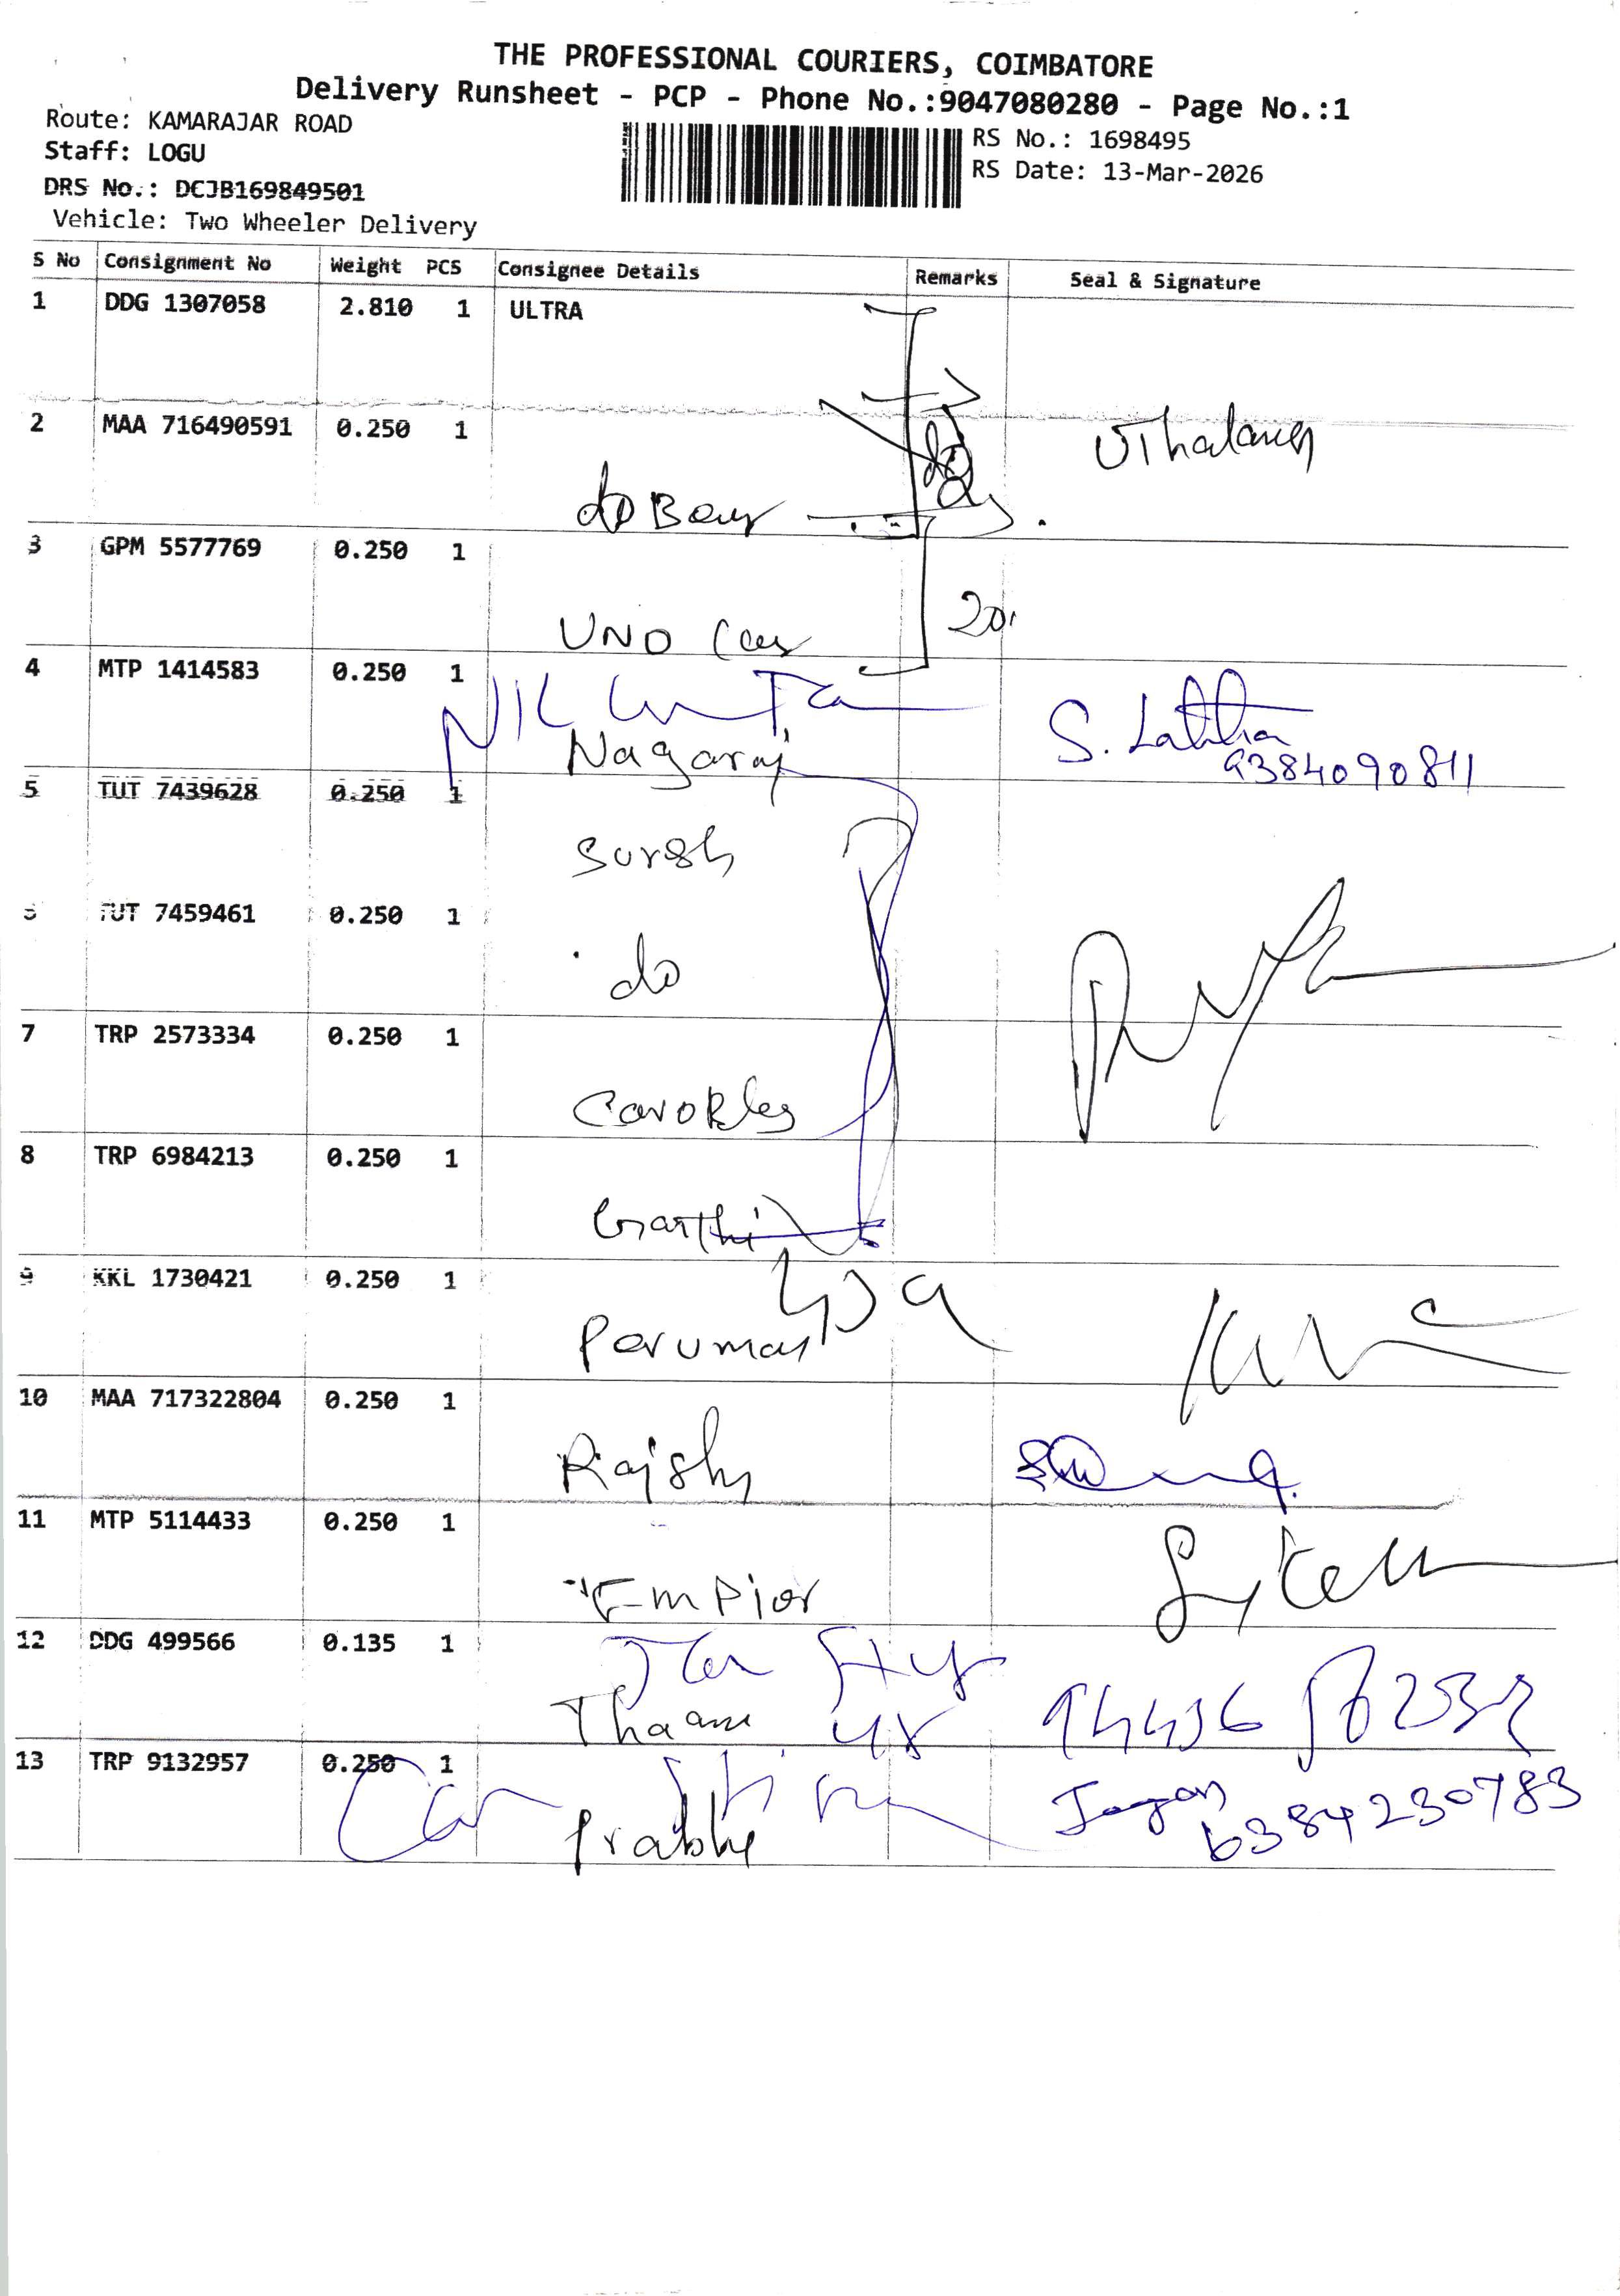 THE PROFESSIONAL COURIERS, COIMBATORE
Delivery Runsheet - PCP - Phone No.:9047080280 - Page No.:1
Route: KAMARAJAR ROAD
RS No.: 1698495
Staff: LOGU
RS Date: 13-Mar-2026
DRS No.: DCJB169849501
Vehicle: Two Wheeler Delivery
S No Consignment No Weight PCS Consignee Details Remarks Seal & Signature
1 DDG 1307058 2.810 1 ULTRA
2 MAA 716490591 0.250 1
do
3 GPM 5577769 0.250 1
UNO 20
4 MTP 1414583 0.250 1
Nagaraj S. Latha
9384090811
5 TUT 7439628 0.250 1
Suresh
6 TUT 7459461 0.250 1
do
7 TRP 2573334 0.250 1
8 TRP 6984213 0.250 1
9 KKL 1730421 0.250 1
Perumal
10 MAA 717322804 0.250 1
11 MTP 5114433 0.250 1
Empior
12 DDG 499566 0.135 1
13 TRP 9132957 0.250 1
Prabhu Jagan
6384230783